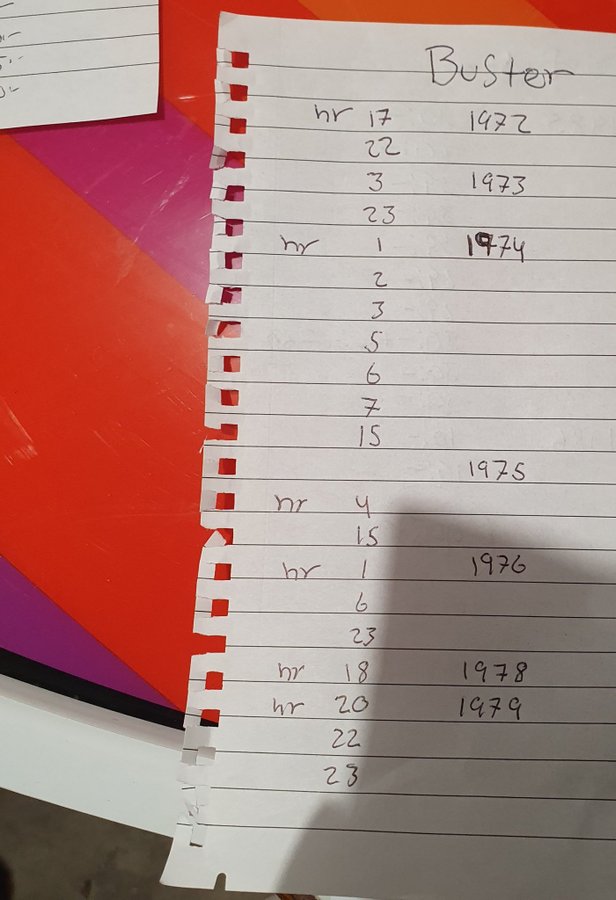 Buster
nr 17 1972
22
3 1973
23
nr 1 1974
2
3
5
6
7
15
1975
nr 4
15
nr 1 1976
6
23
nr 18 1978
nr 20 1979
22
23